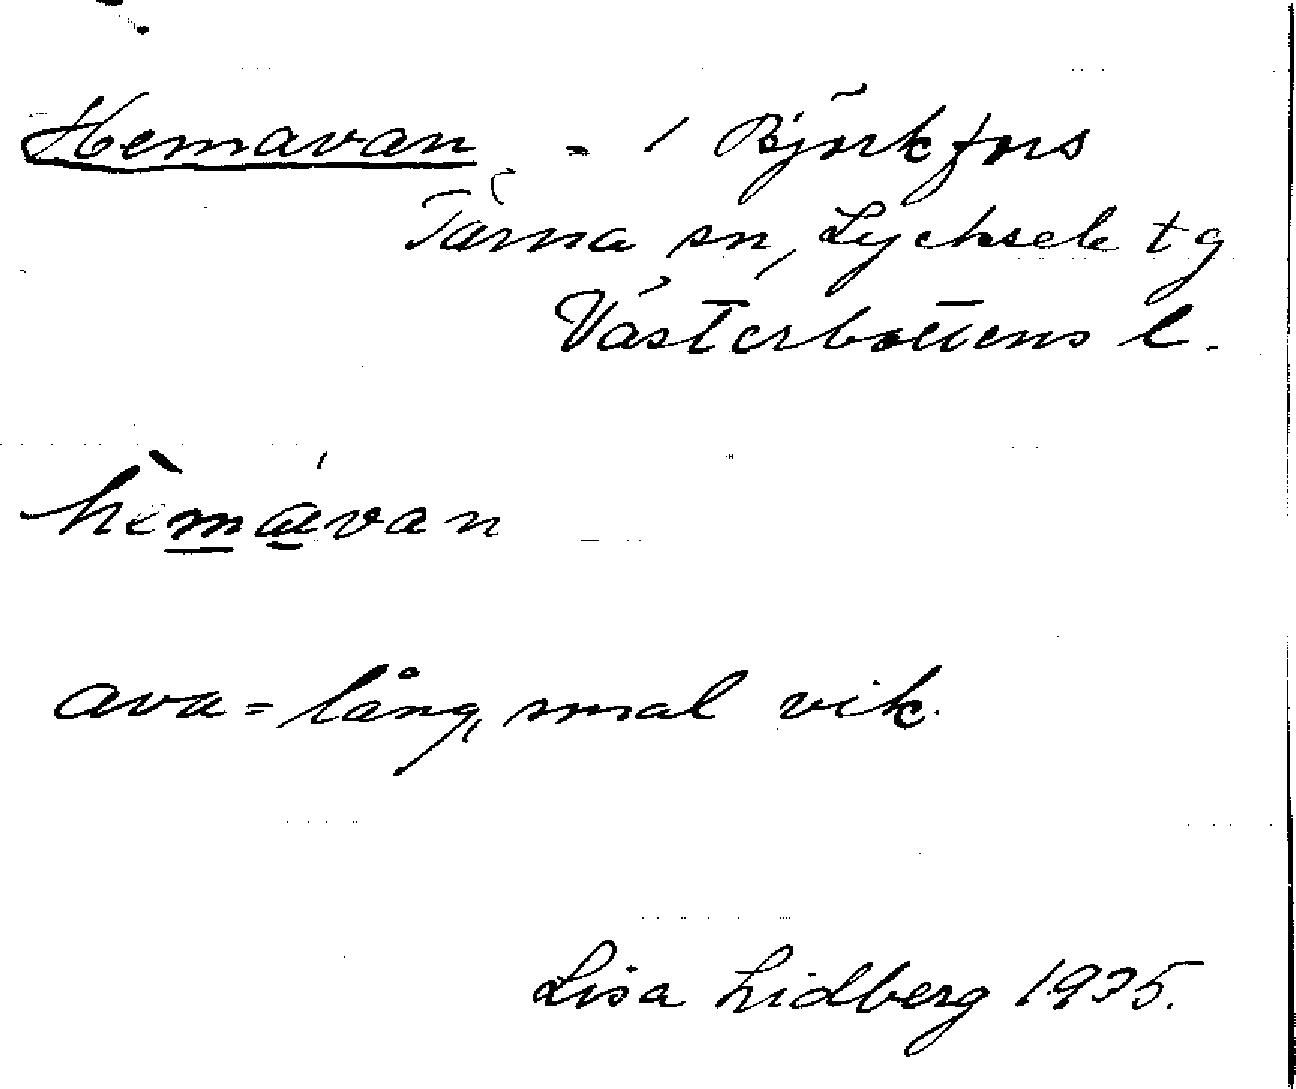 Hemavan - / Björkfors
Tärna sn, Lycksele tg
Västerbottens l.
hèmávan
ava = lång, smal vik.
Lisa Lidberg 1935.